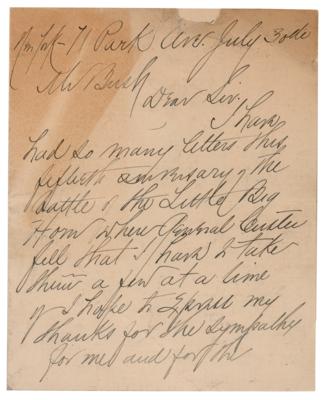 New York - 71 Park Ave. July 30th
Mr Bush
Dear Sir.
I have
had so many letters this
fiftieth anniversary of the
battle of the Little Big
Horn where General Custer
fell that I have to take
them a few at a time
if I hope to Express my
thanks for the sympathy
for me and for the